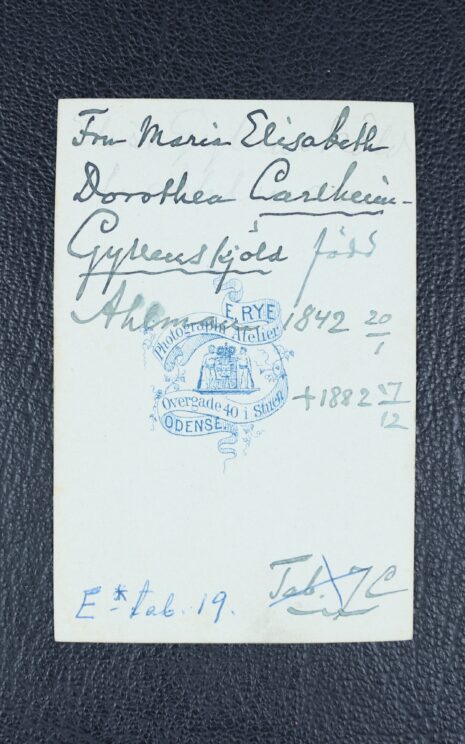 Fru Maria Elisabeth
Dorothea Carlheim-
Gyllenskjöld född
Ahlmann 1842 20/1
E. RYE
Photographs Atelier
Overgade 40 i Stuen
ODENSE.
+ 1882 17/12
Tab. 7 C
E* tab. 19.